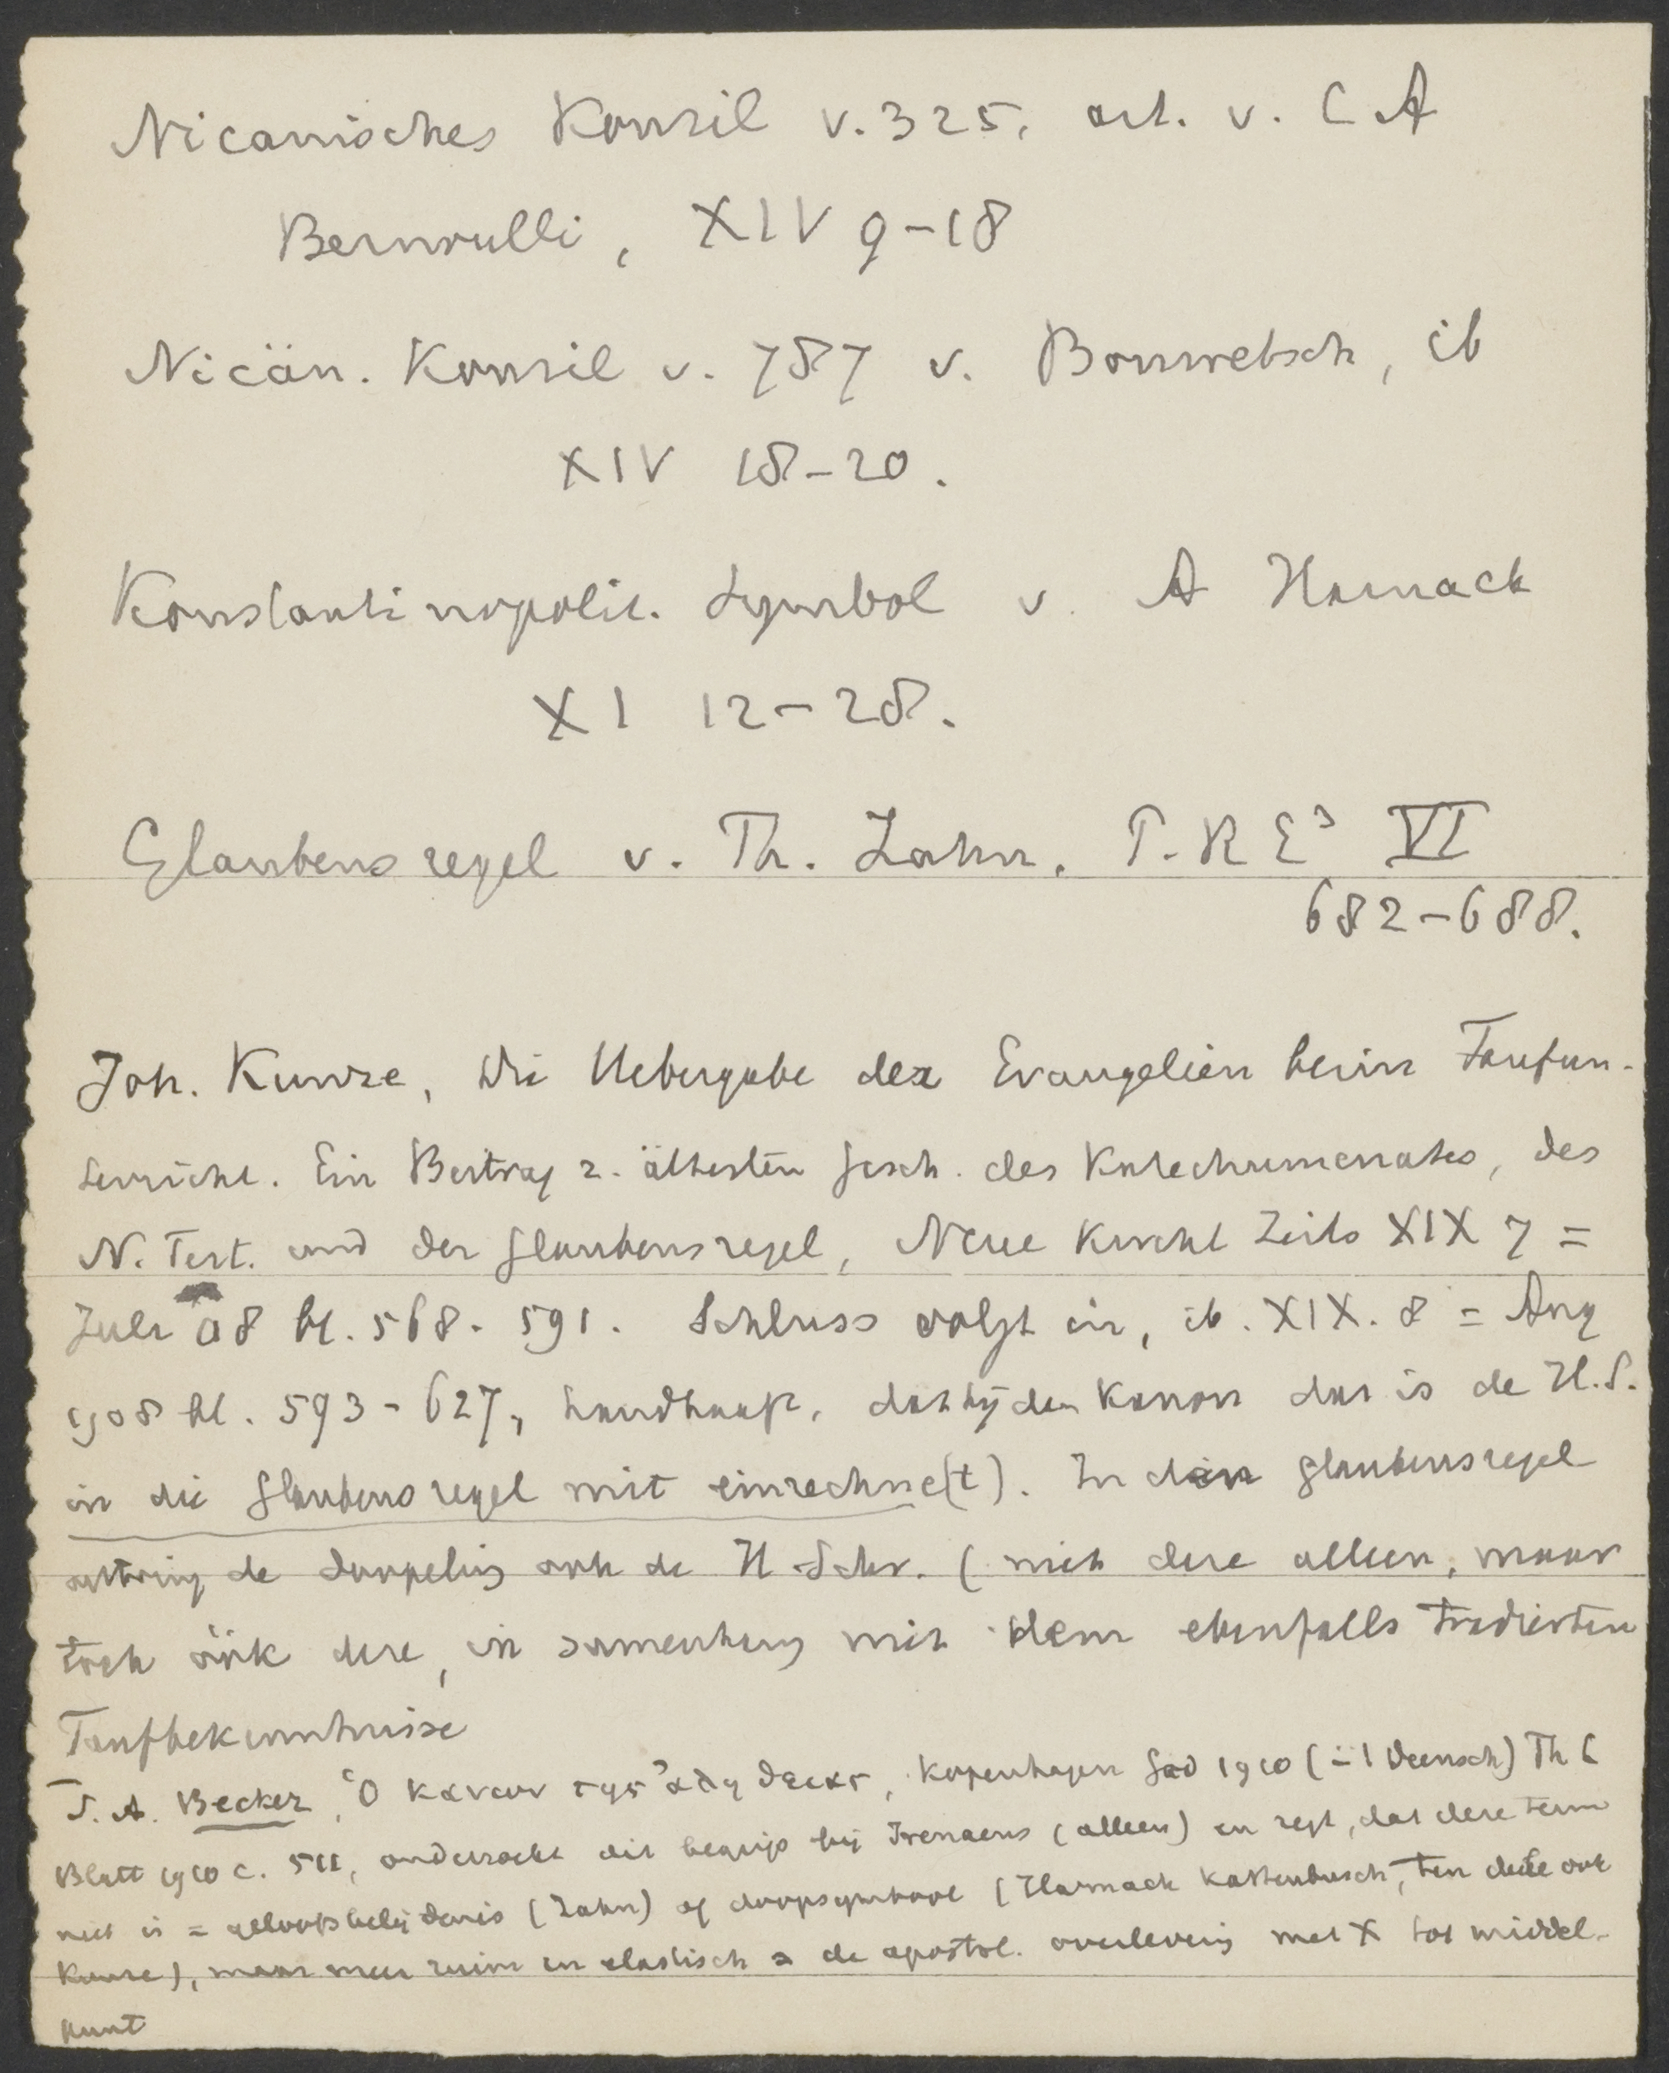 Nicanisches Konzil v. 325, art. v. C A
Bernoulli, XIV 9-18
Nicän. Konzil v. 787 v. Bonwetsch, ib
XIV 18-20.
Konstantinopolit. Symbol v. A Harnack
XI 12-28.
Glaubensregel v. Th. Zahn. P.RE³ VI
682-688.
Joh. Kunze, Die Uebergabe der Evangelien beim Taufun-
terricht. Ein Beitrag z. ältesten Gesch. des Katechumenates, des
N. Test. und der Glaubensregel, Neue Kirchl Zeits XIX 7 =
Juli 08 bl. 568-591. Schluss volgt in, ib. XIX. 8 = Aug
1908 bl. 593-627, handhaaft, dat hij den Kanon dat is de H.S.
in die Glaubensregel mit einrechne(t). In den Glaubensregel
ontving de doopeling ook de H. Schr. (niet deze alleen, maar
toch ook deze, in samenhang mit dem ebenfalls tradierten
Taufbekenntnisse
T. A. Becker, Ὁ κανων της ἀληθειας, Kopenhagen Gad 1910 (in 't Deensch) Th L
Blatt 1910 c. 511, onderzoekt dit begrip bij Irenaeus (alleen) en zegt, dat deze term
niet is = geloofsbelijdenis (Zahn) of doopsymbool (Harnack Kattenbusch, ten deele ook
Kunze), maar meer ruim en elastisch = de apostol. overlevering met X tot middel-
punt